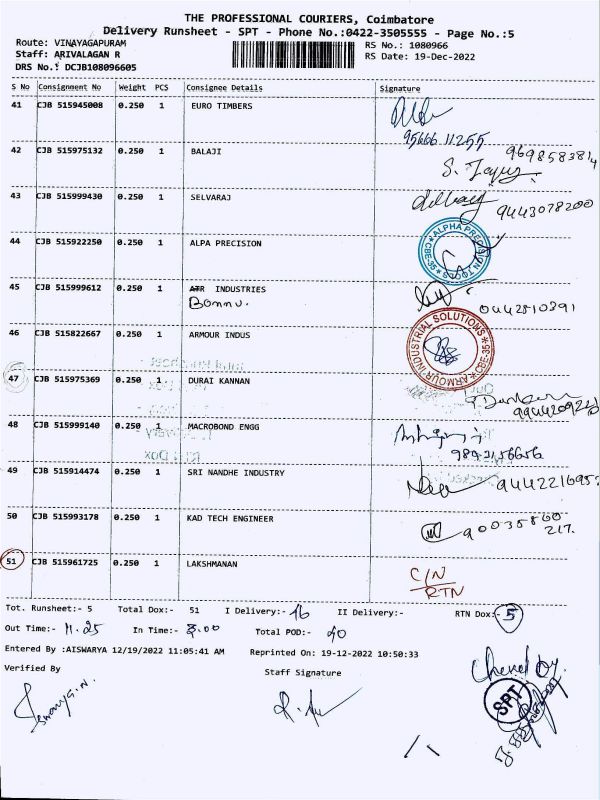 THE PROFESSIONAL COURIERS, Coimbatore
Delivery Runsheet - SPT - Phone No.:0422-3505555 - Page No.:5
Route: VINAYAGAPURAM
RS No.: 1080966
Staff: ARIVALAGAN R
RS Date: 19-Dec-2022
DRS No.: DCJB108096605
S No Consignment No Weight PCS Consignee Details Signature
41 CJB 515945008 0.250 1 EURO TIMBERS
95666 11255
42 CJB 515975132 0.250 1 BALAJI 9698583814
43 CJB 515999430 0.250 1 SELVARAJ
9443078200
44 CJB 515922250 0.250 1 ALPA PRECISION
ALPHA PRECISION TOOLS CBE-35
45 CJB 515999612 0.250 1 ATR INDUSTRIES
0442510391
46 CJB 515822667 0.250 1 ARMOUR INDUS
ARMOUR INDUSTRIAL SOLUTIONS CBE-35
47 CJB 515975369 0.250 1 DURAI KANNAN
48 CJB 515999140 0.250 1 MACROBOND ENGG
49 CJB 515914474 0.250 1 SRI NANDHE INDUSTRY 944221695
50 CJB 515993178 0.250 1 KAD TECH ENGINEER 90035860
217.
51 CJB 515961725 0.250 1 LAKSHMANAN
C/N
RTN
Tot. Runsheet:- 5 Total Dox:- 51 I Delivery:- 16 II Delivery:- RTN Dox:- 5
Out Time:- 11.25 In Time:- 8.00 Total POD:- 40
Entered By :AISWARYA 12/19/2022 11:05:41 AM Reprinted On: 19-12-2022 10:50:33
Verified By Staff Signature
SPT